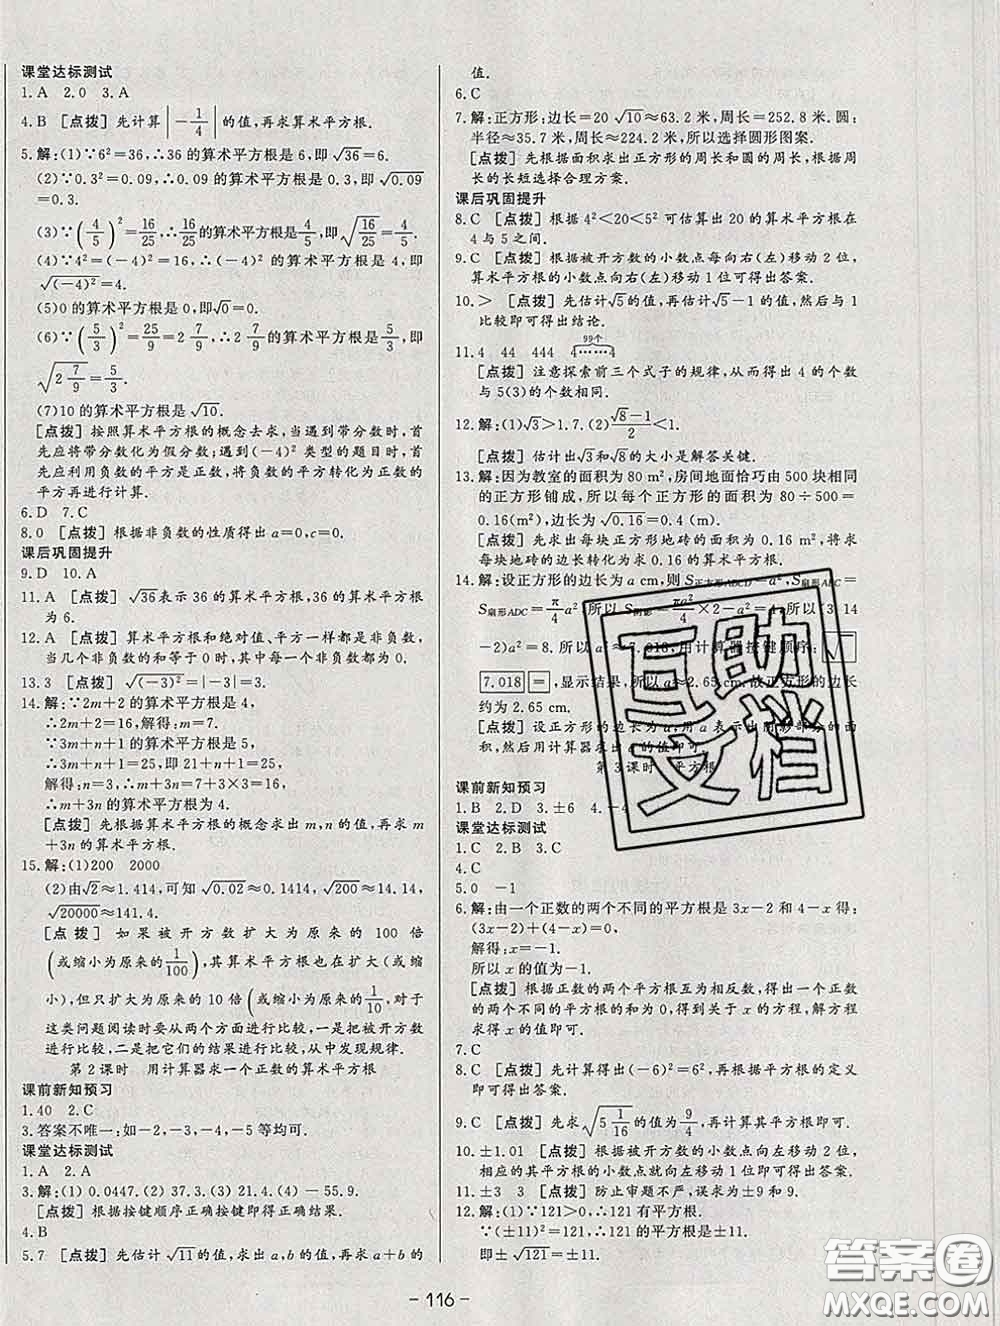 课堂达标测试
1.A 2.0 3.A
4.B [点拨]先计算|-1/4|的值,再求算术平方根.
5.解:(1)∵6²=36,∴36的算术平方根是6,即√36=6.
(2)∵0.3²=0.09,∴0.09的算术平方根是0.3,即√0.09
=0.3.
(3)∵(4/5)²=16/25,∴16/25的算术平方根是4/5,即√(16/25)=4/5.
(4)∵4²=(-4)²=16,∴(-4)²的算术平方根是4,即
√(-4)²=4.
(5)0的算术平方根是0,即√0=0.
(6)∵(5/3)²=25/9=2 7/9,∴2 7/9的算术平方根是5/3,即
√(2 7/9)=5/3.
(7)10的算术平方根是√10.
[点拨]按照算术平方根的概念去求,当遇到带分数时,首
先应将带分数化为假分数;遇到(-4)²类型的题目时,首
先应利用负数的平方是正数,将负数的平方转化为正数的
平方再进行计算.
6.D 7.C
8.0 [点拨]根据非负数的性质得出a=0,c=0.
课后巩固提升
9.D 10.A
11.A [点拨]√36表示36的算术平方根,36的算术平方根
为6.
12.A [点拨]算术平方根和绝对值、平方一样都是非负数,
当几个非负数的和等于0时,其中每一个非负数都为0.
13.3 [点拨]√(-3)²=|-3|=3.
14.解:∵2m+2的算术平方根是4,
∴2m+2=16,解得:m=7.
∵3m+n+1的算术平方根是5,
∴3m+n+1=25,即21+n+1=25,
解得:n=3,∴m+3n=7+3×3=16,
∴m+3n的算术平方根为4.
[点拨]先根据算术平方根的概念求出m,n的值,再求m
+3n的算术平方根即可.
15.解:(1)200 2000
(2)由√2≈1.414,可知√0.02≈0.1414,√200≈14.14,
√20000≈141.4.
[点拨]如果被开方数扩大为原来的100倍
(或缩小为原来的1/100),其算术平方根也在扩大(或缩
小),但只扩大为原来的10倍(或缩小为原来的1/10),对于
这类问题阅读时要从两个方面进行比较,一是把被开方数
进行比较,二是把它们的结果进行比较,从中发现规律.
第2课时 用计算器求一个正数的算术平方根
课前新知预习
1.40 2.C
3.答案不唯一:如-2,-3,-4,-5等均可.
课堂达标测试
1.A 2.A
3.解:(1)0.0447.(2)37.3.(3)21.4.(4)-55.9.
[点拨]按键顺序正确按键即得正确结果.
4.B
5.7 [点拨]先估计√11的值,求出a,b的值,再求a+b的
值.
6.C
7.解:正方形:边长=20√10≈63.2米,周长=252.8米.圆:
半径≈35.7米,周长≈224.2米,所以选择圆形图案.
[点拨]先根据面积求出正方形的周长和圆的周长,根据周
长的长短选择合理方案.
课后巩固提升
8.C [点拨]根据4²<20<5²可估算出20的算术平方根在
4与5之间.
9.C [点拨]根据被开方数的小数点每向右(左)移动2位,
算术平方根的小数点向右(左)移动1位可得出答案.
10.> [点拨]先估计√5的值,再估计√5-1的值,然后与1
比较即可得出结论.
11.4 44 444 4……4(99个)
[点拨]注意探索前三个式子的规律,从而得出4的个数
与5(3)的个数相同.
12.解:(1)√3>1.7.(2)(√8-1)/2<1.
[点拨]估计出√3和√8的大小是解答关键.
13.解:因为教室的面积为80m²,房间地面恰巧由500块相同
的正方形铺成,所以每个正方形的面积为80÷500=
0.16(m²),边长为√0.16=0.4(m).
[点拨]先求出每块正方形地砖的面积为0.16m²,将求
每块地砖的边长转化为求0.16的算术平方根.
14.解:设正方形的边长为a cm,则S正方形ABCD=a²,S扇形ABC=
S扇形ADC=π/4a²,所以S阴影=πa²/4×2-a²=1/2×(3.14
-2)a²=8.所以a²≈7.018;用计算器按键顺序:√
7.018 =,显示结果,所以a≈2.65cm.故正方形的边长
约为2.65cm.
[点拨]设正方形的边长为a,用a表示出阴影部分的面
积,然后用计算器求出a的值即可.
第3课时 平方根
课前新知预习
1.B 2.D 3.±6 4.-4
课堂达标测试
1.C 2.B 3.C
4.C
5.0 -1
6.解:由一个正数的两个不同的平方根是3x-2和4-x得:
(3x-2)+(4-x)=0,
解得:x=-1.
所以x的值为-1.
[点拨]根据正数的两个平方根互为相反数,得出一个正数
的两个不同的平方根的和为0,得到关于x的方程,解方程
求得x的值即可.
7.C
8.C [点拨]先计算出(-6)²=6²,再根据平方根的定义
即可得出答案.
9.C [点拨]先求√(5 1/16)的值为9/4,再计算其平方根即可.
10.±1.01 [点拨]根据被开方数的小数点向左移动2位,
相应的其平方根的小数点向左移动1位即可得出答案.
11.±3 3 [点拨]防止审题不严,误求为±9和9.
12.解:(1)∵121>0,∴121有平方根.
∵(±11)²=121,∴121的平方根是±11.
即±√121=±11.
- 116 -
互助
文档
答案圈
MXQE.COM